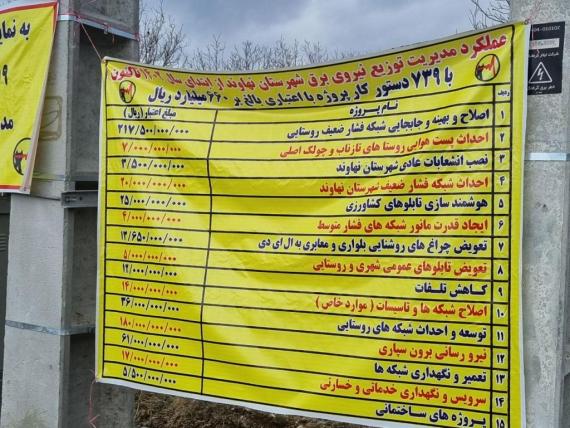 عملکرد مدیریت توزیع نیروی برق شهرستان نهاوند از ابتدای سال ۱۴۰۲ تاکنون
با ۷۳۹ دستور کار پروژه با اعتباری بالغ بر ۶۲۰ میلیارد ریال
ردیف نام پروژه مبلغ اعتبار (ریال)
۱ اصلاح و بهینه و جابجایی شبکه فشار ضعیف روستایی ۲۱۷/۵۰۰/۰۰۰/۰۰۰
۲ احداث پست هوایی روستا های تازناب و چولک اصلی ۷/۰۰۰/۰۰۰/۰۰۰
۳ نصب انشعابات عادی شهرستان نهاوند ۳/۵۰۰/۰۰۰/۰۰۰
۴ احداث شبکه فشار ضعیف شهرستان نهاوند ۲۰/۰۰۰/۰۰۰/۰۰۰
۵ هوشمند سازی تابلوهای کشاورزی ۲۵/۰۰۰/۰۰۰/۰۰۰
۶ ایجاد قدرت مانور شبکه های فشار متوسط ۴/۰۰۰/۰۰۰/۰۰۰
۷ تعویض چراغ های روشنایی بلواری و معابری به ال ای دی ۱۳/۶۵۰/۰۰۰/۰۰۰
۸ تعویض تابلوهای عمومی شهری و روستایی ۵/۰۰۰/۰۰۰/۰۰۰
۹ کاهش تلفات ۱۲/۰۰۰/۰۰۰/۰۰۰
۱۰ اصلاح شبکه ها و تاسیسات ( موارد خاص ) ۱۴/۰۰۰/۰۰۰/۰۰۰
۱۱ توسعه و احداث شبکه های روستایی ۳۶/۰۰۰/۰۰۰/۰۰۰
۱۲ نیرو رسانی برون سپاری ۱۸۰/۰۰۰/۰۰۰/۰۰۰
۱۳ تعمیر و نگهداری شبکه ها ۶۱/۰۰۰/۰۰۰/۰۰۰
۱۴ سرویس و نگهداری خدماتی و خسارتی ۱۷/۰۰۰/۰۰۰/۰۰۰
۱۵ پروژه های ساختمانی ۵/۵۰۰/۰۰۰/۰۰۰
به نمای
۹
مد